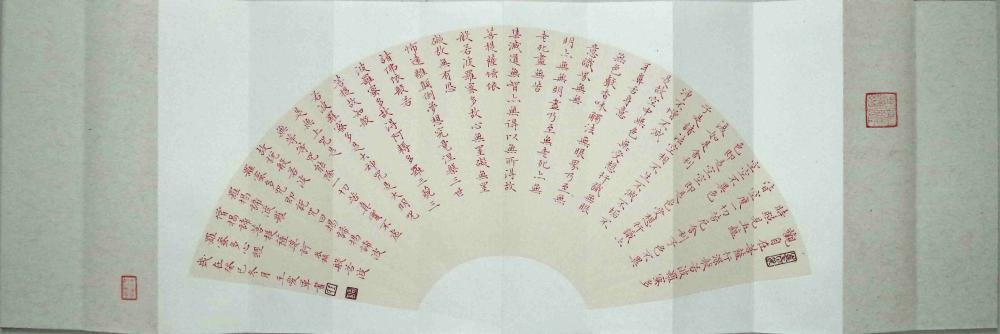 觀自在菩薩行深般若波羅蜜多
時照見五蘊
皆空度一切苦厄舍利子色不異
空空不異色
色即是空空即是色受想行識亦
復如是舍利
子是諸法空相不生不滅不垢不
淨不增不減
是故空中無色無受想行識無眼
耳鼻舌身意
無色聲香味觸法無眼界乃至無
意識界無無
明亦無無明盡乃至無老死亦無
老死盡無苦
集滅道無智亦無得以無所得故
菩提薩埵依
般若波羅蜜多故心無罣礙無罣
礙故無有恐
怖遠離顛倒夢想究竟涅槃三世
諸佛依般若
波羅蜜多故得阿耨多羅三藐三
菩提故知般
若波羅蜜多是大神咒是大明咒
是無上咒是
無等等咒能除一切苦真實不虛
故說般若波
羅蜜多咒即說咒曰揭諦揭諦波
羅揭諦波羅
僧揭諦菩提薩婆訶 般若波
羅蜜多心經
歲在癸巳冬月王愛軍書